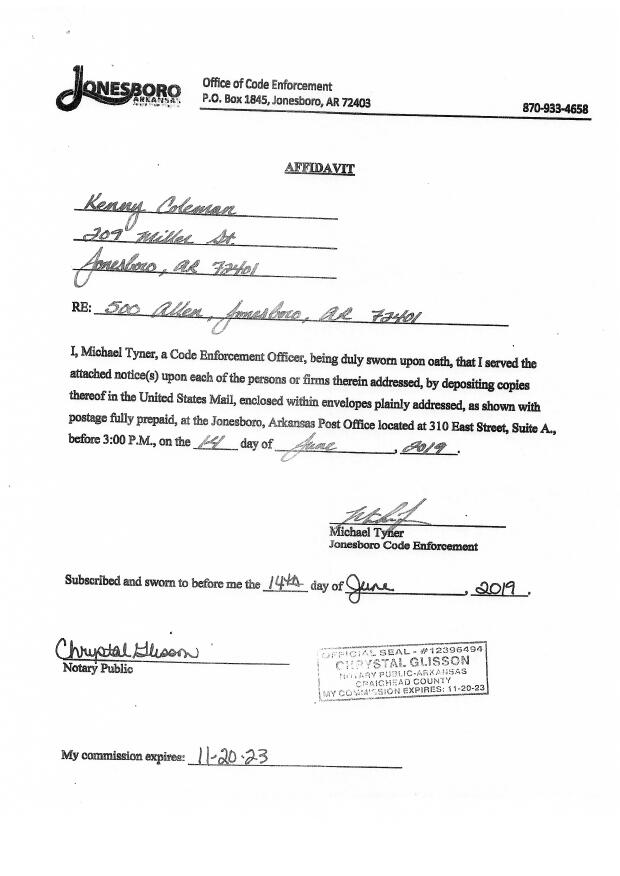 JONESBORO
ARKANSAS
Office of Code Enforcement
P.O. Box 1845, Jonesboro, AR 72403
870-933-4658
AFFIDAVIT
Kenny Coleman
209 Miller St.
Jonesboro, AR 72401
RE: 500 Allen, Jonesboro, AR 72401
I, Michael Tyner, a Code Enforcement Officer, being duly sworn upon oath, that I served the
attached notice(s) upon each of the persons or firms therein addressed, by depositing copies
thereof in the United States Mail, enclosed within envelopes plainly addressed, as shown with
postage fully prepaid, at the Jonesboro, Arkansas Post Office located at 310 East Street, Suite A.,
before 3:00 P.M., on the 14 day of June, 2019.
Michael Tyner
Jonesboro Code Enforcement
Subscribed and sworn to before me the 14th day of June, 2019.
Chrystal Glisson
Notary Public
OFFICIAL SEAL - #12396494
CHRYSTAL GLISSON
NOTARY PUBLIC-ARKANSAS
CRAIGHEAD COUNTY
MY COMMISSION EXPIRES: 11-20-23
My commission expires: 11-20-23